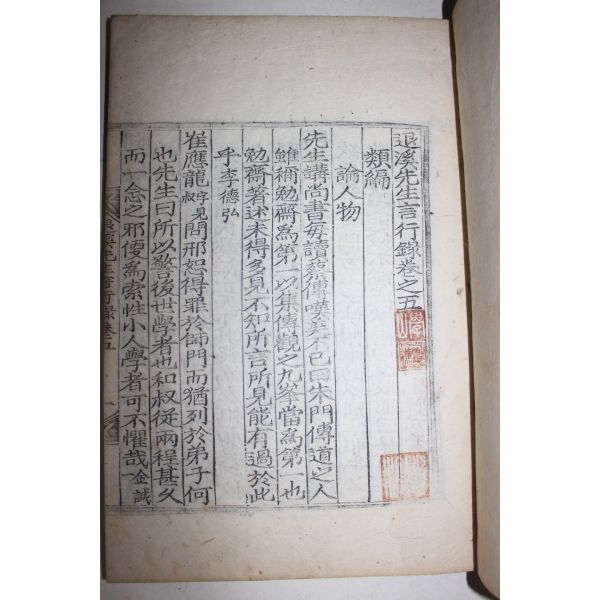 退溪先生言行錄卷之五
類編
論人物
先生講尚書每讀蔡傳嘆美不已曰朱門傳道之人
雖稱勉齋爲第一以集傳觀之九峯當爲第一也
勉齋著述未得多見不知所言所見能有過於此
乎李德弘
崔應龍字見叔問邢恕得罪於師門而猶列於弟子何
也先生曰所以警後世學者也和叔從兩程甚久
而一念之邪便爲索性小人學者可不懼哉金誠
退溪先生言行錄卷五